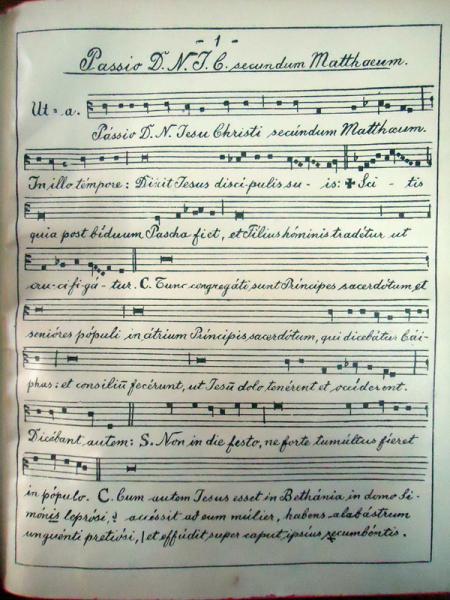 - 1 -
Passio D. N. J. C. secundum Matthaeum.
Ut = a.
Pássio D. N. Iesu Christi secúndum Matthaeum.
In illo témpore: Dixit Iesus discí-pulis su - is: ✠ Sci - tis
quia post bíduum Pascha fiet, et Fílius hóminis tradétur ut
cru-ci-fi-gá-tur. C. Tunc congregáti sunt Príncipes sacerdótum, et
senióres pópuli in átrium Príncipis sacerdótum, qui dicebátur Cái-
phas: et consíliũ fecérunt, ut Jesũ dolo tenérent et occíderent.
Dicébant autem: S. Non in die festo, ne forte tumúltus fíeret
in pópulo. C. Cum autem Jesus esset in Bethánia in domo Si-
mónis leprósi, ? accéssit ad eum múlier, habens alabástrum
unguénti pretiósi, | et effúdit super caput ipsíus recumbéntis.